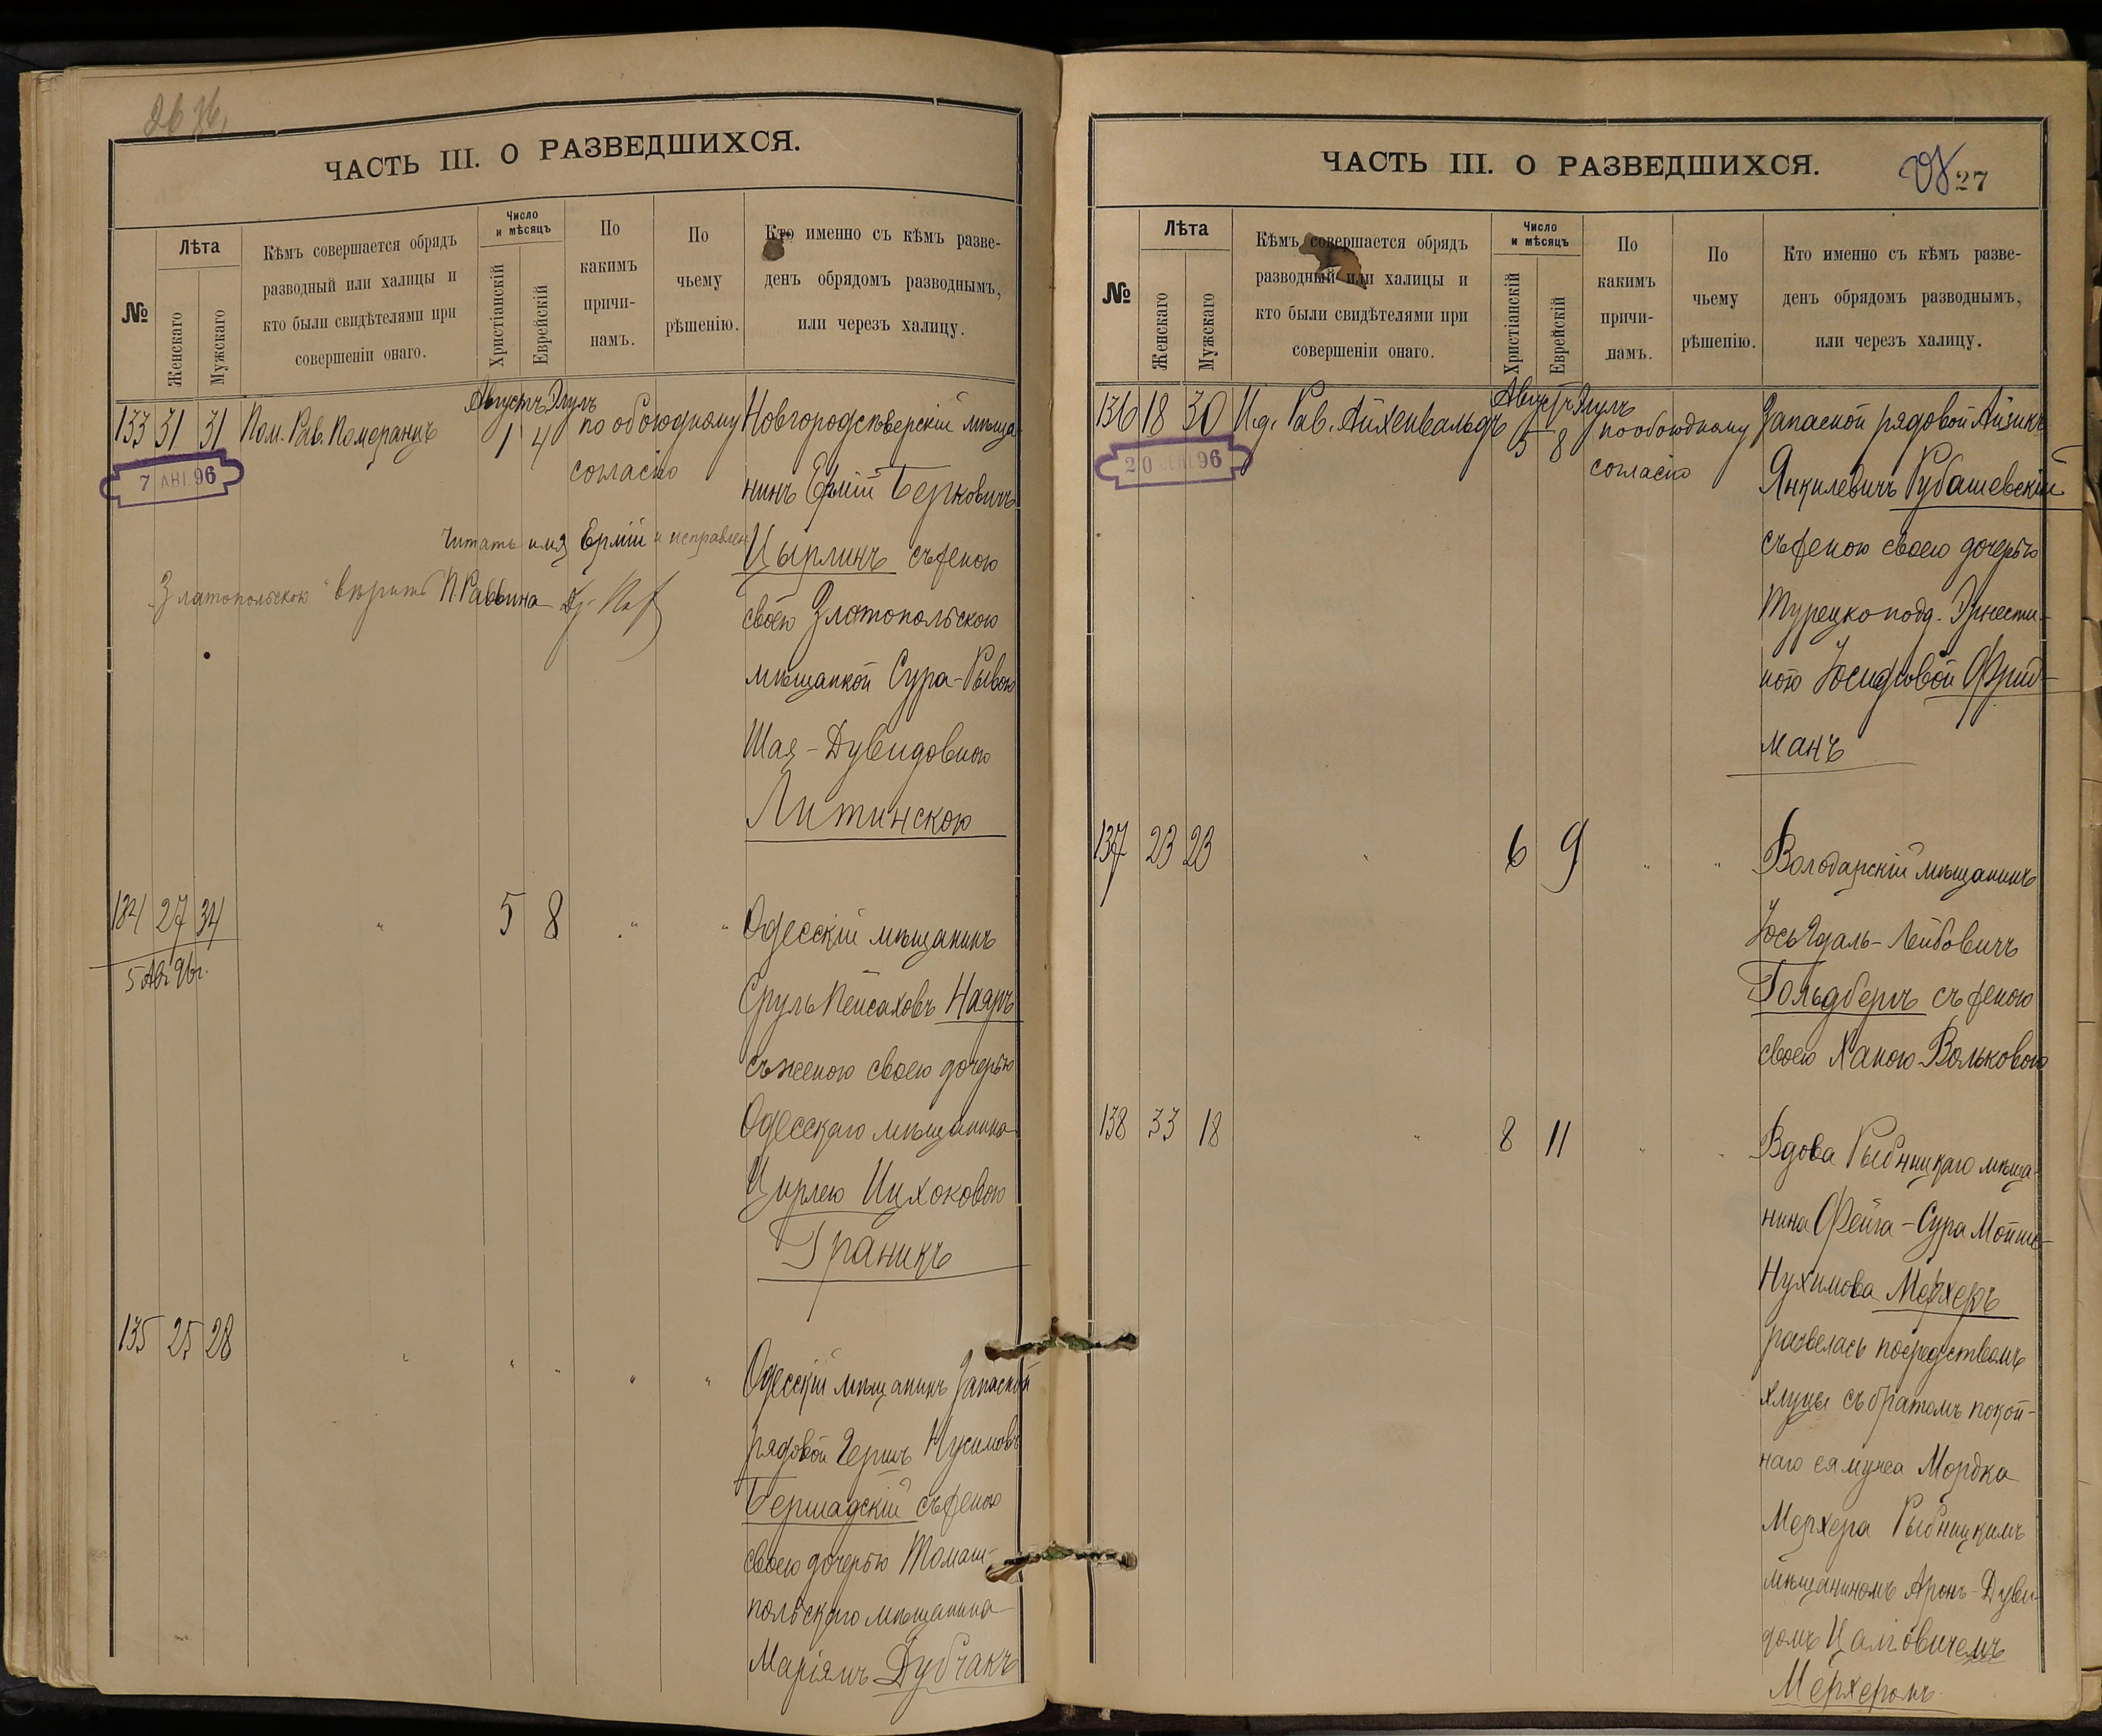 ЧАСТЬ III. О РАЗВЕДШИХСЯ.
№
Лѣта
Женскаго
Мужскаго
Кѣмъ совершается обрядъ
разводный или халицы и
кто были свидѣтелями при
совершеніи онаго.
Число
и мѣсяцъ
Христіанскій
Еврейскій
По
какимъ
причи-
намъ.
По
чьему
рѣшенію.
Кто именно съ кѣмъ разве-
денъ обрядомъ разводнымъ,
или черезъ халицу.
Августъ Элулъ
133 31 31 Пом. Рав. Померанцъ 1 4 по обоюдному
согласію
7 АВГ. 96
Новгородсѣверскій мѣща-
нинъ Ермій Берковичъ
Цырлинъ съ женою
своею Златопольскою
мѣщанкой Сура-Рывою
Шая-Дувидовною
Литинскою
Читать имя Ермій и исправлен.
"Златопольскою" вѣрить П. Раввина
134 27 34 " 5 8 " "
5 Авг 96 г.
Одесскій мѣщанинъ
Сруль Пейсаховъ Наяръ
съ женою своею дочерью
Одесскаго мѣщанина
Цирлею Ицхоковою
Граникъ
135 25 28 " " " " "
Одесскій мѣщанинъ запасной
рядовой Гершъ Нусимовъ
Бершадскій съ женою
своею дочерью Томаш-
польскаго мѣщанина
Маріямъ Дубчакъ
ЧАСТЬ III. О РАЗВЕДШИХСЯ.
27
№
Лѣта
Женскаго
Мужскаго
Кѣмъ совершается обрядъ
разводный или халицы и
кто были свидѣтелями при
совершеніи онаго.
Число
и мѣсяцъ
Христіанскій
Еврейскій
По
какимъ
причи-
намъ.
По
чьему
рѣшенію.
Кто именно съ кѣмъ разве-
денъ обрядомъ разводнымъ,
или черезъ халицу.
Августъ Элулъ
136 18 30 И.д. Рав. Айхенвальдъ 5 8 по обоюдному
согласію
20 96
Запасной рядовой Айзикъ
Янкилевичъ Рубашевскій
съ женою своею дочерью
Турецко подд. Эрнести-
ною Іосифовой Фрид-
манъ
137 23 23 " 6 9 " "
Володарскій мѣщанинъ
Іось Удаль-Лейбовичъ
Гольдбергъ съ женою
своею Ханою Вольковою
138 33 18 " 8 11 " "
Вдова Рыбницкаго мѣща-
нина Фейга-Сура Мойше-
Нухимова Мерхеръ
развелась посредствомъ
хлуцы съ братомъ покой-
наго ея мужа Мордка
Мерхера Рыбницкимъ
мѣщаниномъ Аронъ-Дуви-
домъ Цалговичемъ
Мерхеромъ